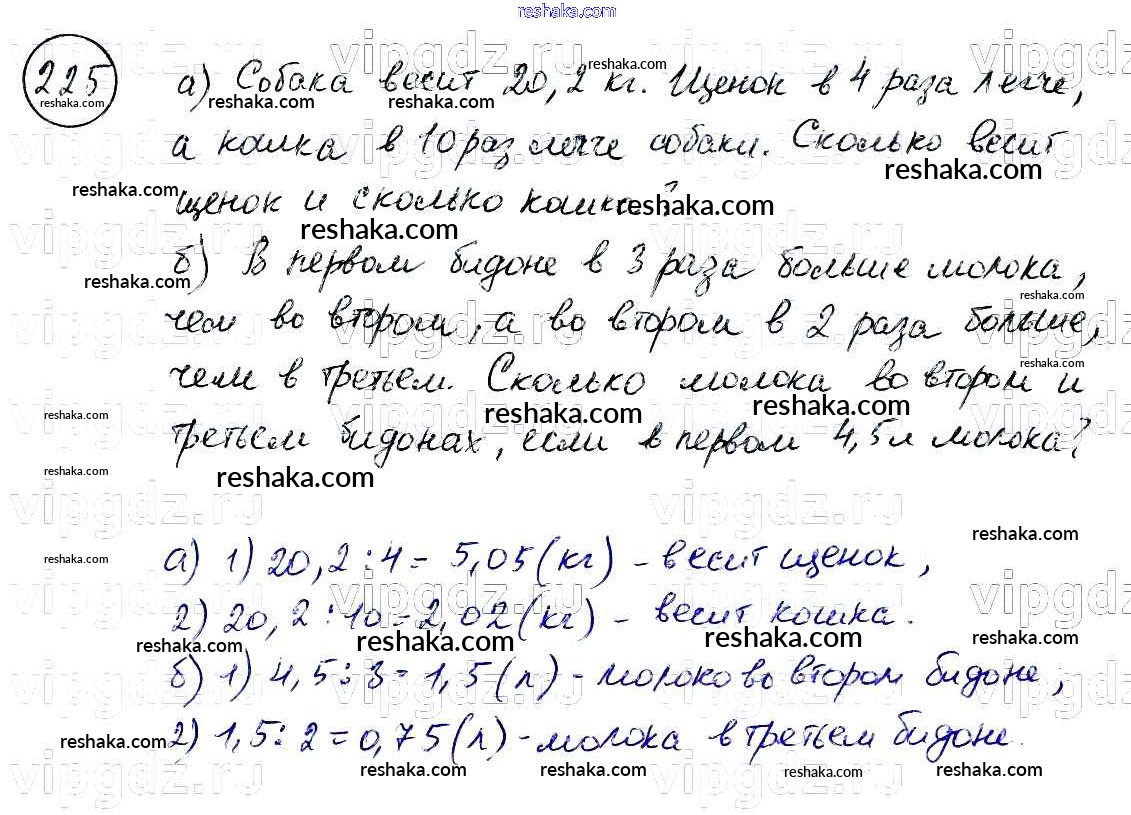 reshaka.com
225
а) Собака весит 20,2 кг. Щенок в 4 раза легче,
а кошка в 10 раз легче собаки. Сколько весит
щенок и сколько кошка?
б) В первом бидоне в 3 раза больше молока,
чем во втором, а во втором в 2 раза больше,
чем в третьем. Сколько молока во втором и
третьем бидонах, если в первом 4,5 л молока?
а) 1) 20,2 : 4 = 5,05 (кг) - весит щенок,
2) 20,2 : 10 = 2,02 (кг) - весит кошка.
б) 1) 4,5 : 3 = 1,5 (л) - молоко во втором бидоне,
2) 1,5 : 2 = 0,75 (л) - молока в третьем бидоне.